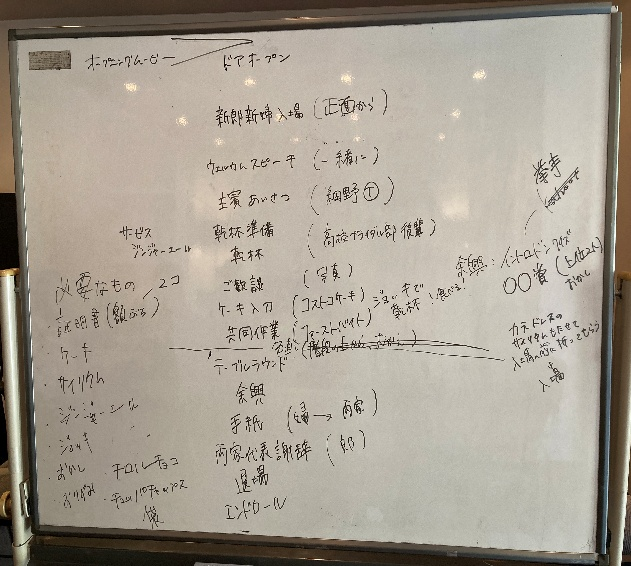 オープニングムービー
ドアオープン
新郎新婦入場 (正面から)
ウェルカムスピーチ (一緒に)
主賓あいさつ (細野Ⓣ)
サービス
ジンジャーエール
乾杯準備 (高校ブライダル部 後輩)
乾杯
ご歓談 (写真)
ケーキ入刀 (コストコケーキ)
ジョッキで
乾杯!
共同作業 (ファーストバイト)
テーブルラウンド
余興
手紙 (婦→両家)
両家代表謝辞 (郎)
退場
エンドロール
必要なもの
証明書 (額ぶち) 2コ
・ケーキ
・サイリウム
・ジンジャーエール
・ジョッキ
・おかし チロルチョコ
チュッパチャップス
袋
挙手
余興: イントロドンクイズ
〇〇賞 (上位2人)
おかし
カラードレスの
入場の時に持ってもらう
入場